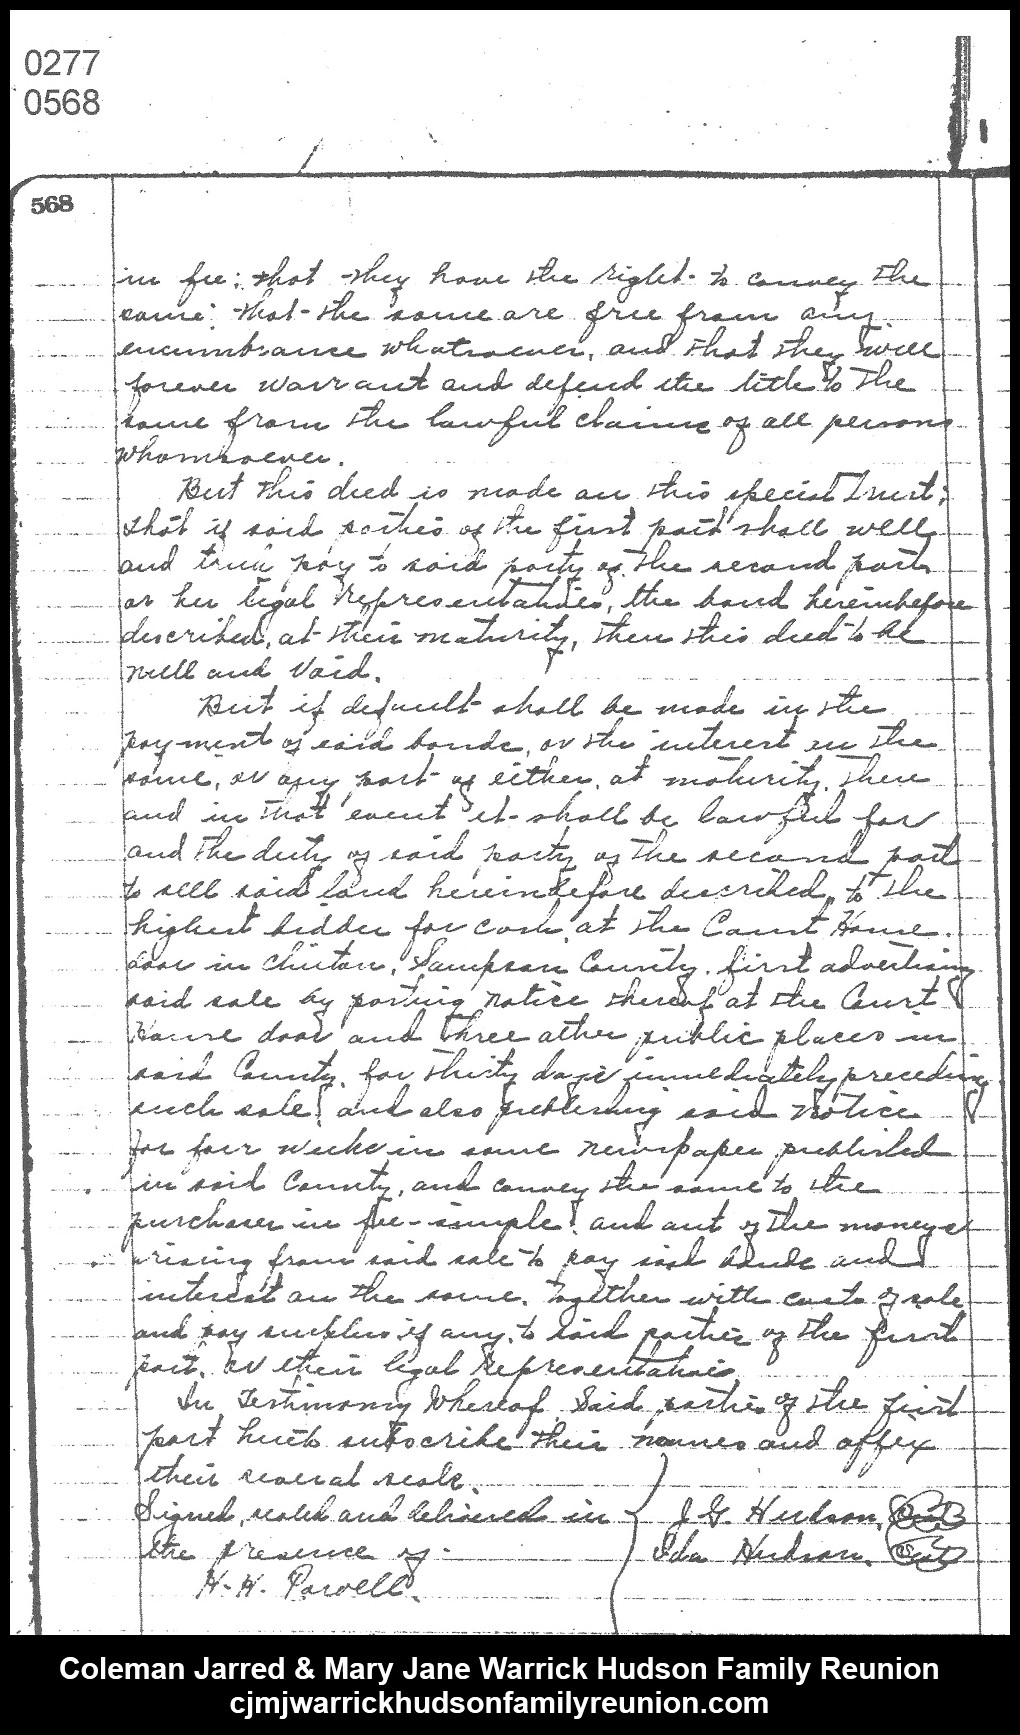 0277
0568
568
in fee; that they have the right to convey the
same; that the same are free from any
encumbrance whatsoever, and that they will
forever warrant and defend the title to the
same from the lawful claims of all persons
whomsoever.
But this deed is made on this special Trust;
that if said parties of the first part shall well
and truly pay to said party of the second part
or her legal representatives, the bond hereinbefore
described, at their maturity, then this deed to be
null and void.
But if default shall be made in the
payment of said bonds, or the interest on the
same, or any part of either, at maturity, then
and in that event it shall be lawful for
and the duty of said party of the second part
to sell said land hereinbefore described, to the
highest bidder for cash, at the Court House
door in Clinton, Sampson County, first advertising
said sale by posting notice thereof at the Court
House door and three other public places in
said County, for thirty days immediately preceding
such sale, and also publishing said notice
for four weeks in some newspaper published
in said County, and convey the same to the
purchaser in fee-simple, and out of the moneys
arising from said sale to pay said bonds and
interest on the same, together with costs of sale
and pay surplus if any, to said parties of the first
part, or their legal representatives.
In Testimony Whereof, Said parties of the first
part hereto subscribe their names and affix
their several seals.
Signed, sealed and delivered in J. G. Hudson, (Seal)
the presence of- Ida Hudson, (Seal)
H. H. Powell.
Coleman Jarred & Mary Jane Warrick Hudson Family Reunion
cjmjwarrickhudsonfamilyreunion.com